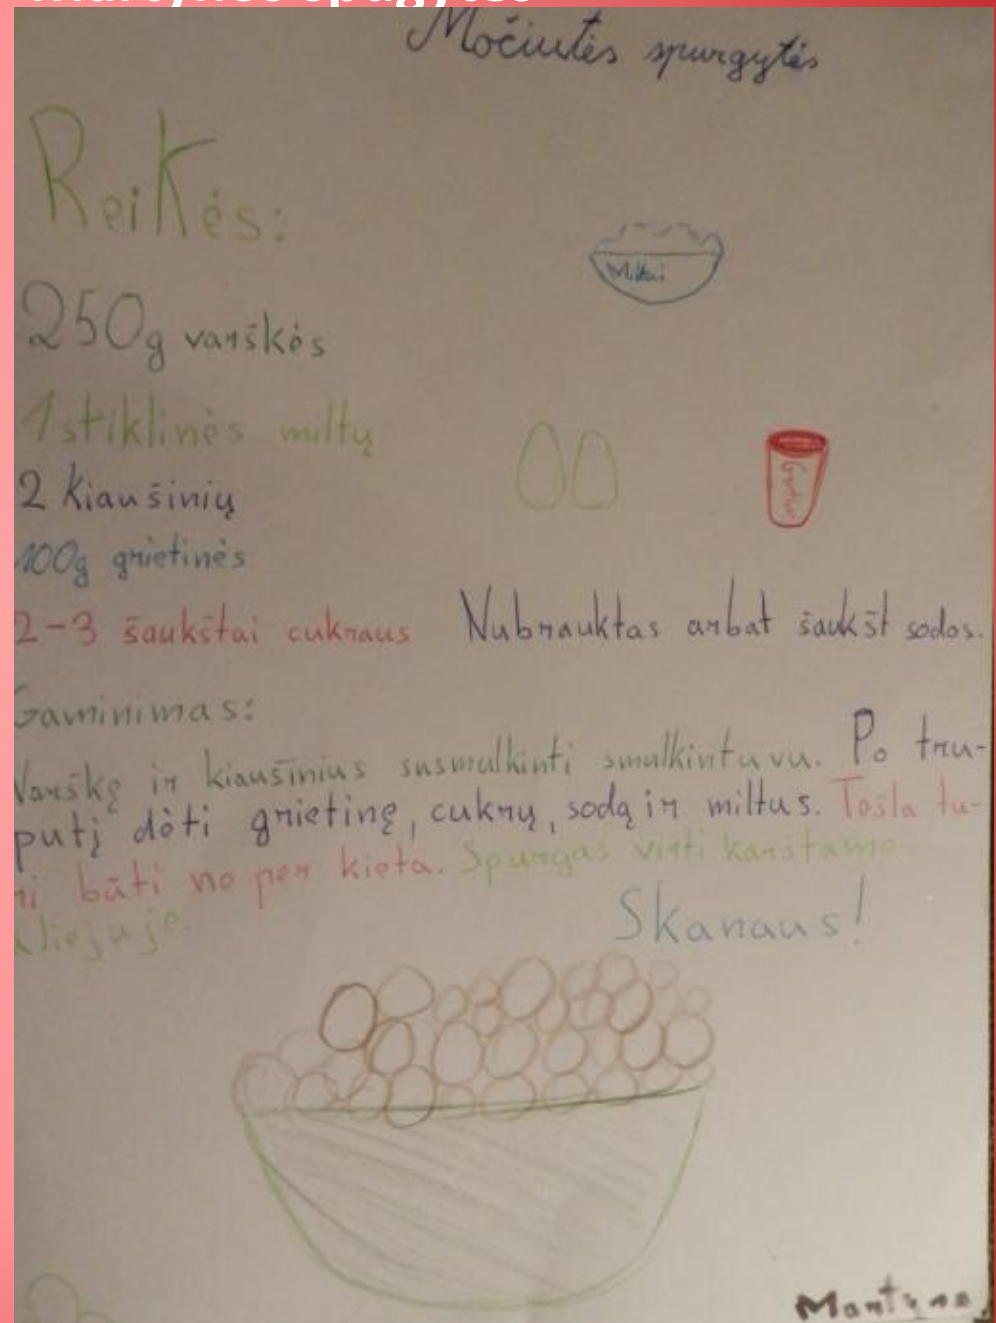 Močiutės spurgytės
Reikės:
Miltai
250g varškės
1 stiklinės miltų
2 kiaušinių
100g grietinės
2-3 šaukštai cukraus Nubrauktas arbat šaukšt sodos.
Gaminimas:
Varškę ir kiaušinius susmulkinti smulkintuvu. Po tru-
putį dėti grietinę, cukrų, sodą ir miltus. Tešla tu-
ri būti ne per kieta. Spurgas virti karštame
aliejuje.
Skanaus!